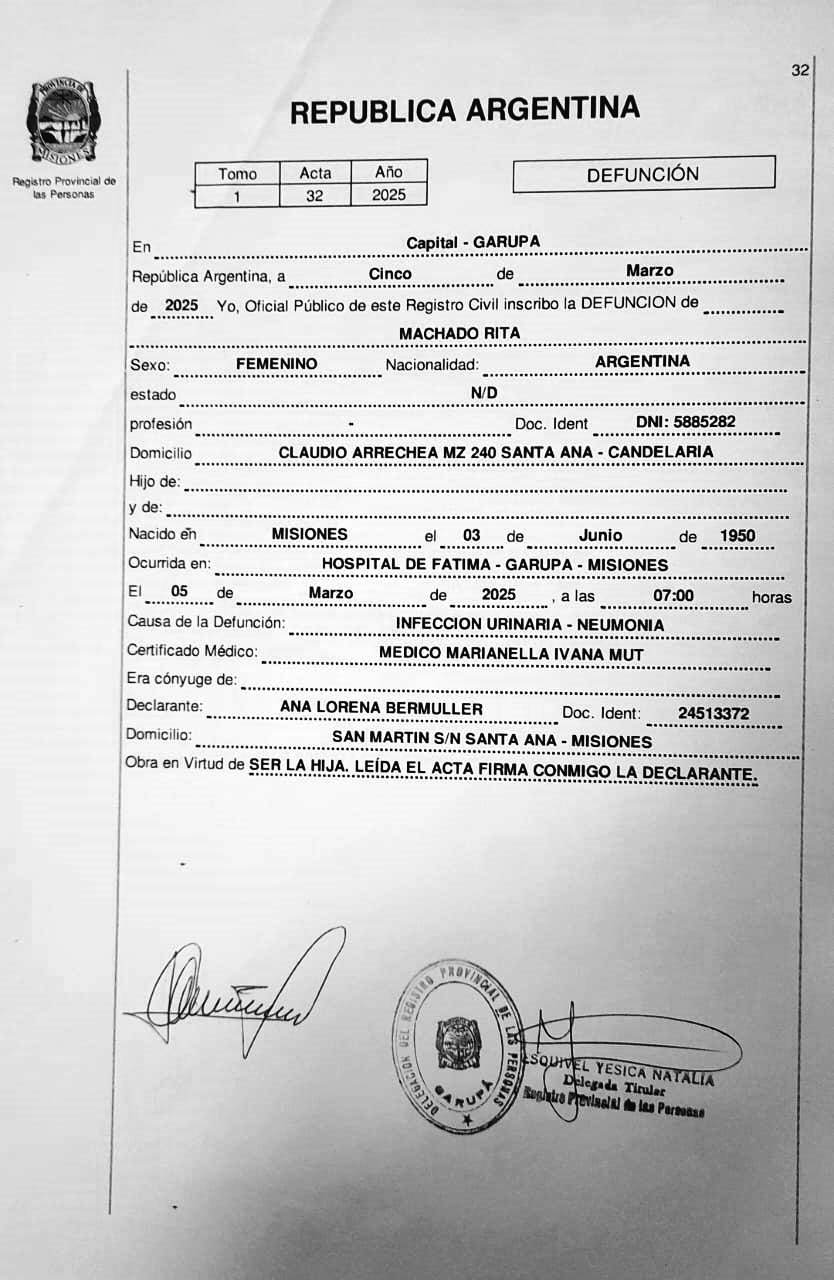 32
PROVINCIA DE
MISIONES
Registro Provincial de
las Personas
REPUBLICA ARGENTINA
Tomo Acta Año
1 32 2025
DEFUNCIÓN
En Capital - GARUPA
República Argentina, a Cinco de Marzo
de 2025 Yo, Oficial Público de este Registro Civil inscribo la DEFUNCION de
MACHADO RITA
Sexo: FEMENINO Nacionalidad: ARGENTINA
estado N/D
profesión - Doc. Ident DNI: 5885282
Domicilio CLAUDIO ARRECHEA MZ 240 SANTA ANA - CANDELARIA
Hijo de:
y de:
Nacido en MISIONES el 03 de Junio de 1950
Ocurrida en: HOSPITAL DE FATIMA - GARUPA - MISIONES
El 05 de Marzo de 2025 , a las 07:00 horas
Causa de la Defunción: INFECCION URINARIA - NEUMONIA
Certificado Médico: MEDICO MARIANELLA IVANA MUT
Era cónyuge de:
Declarante: ANA LORENA BERMULLER Doc. Ident: 24513372
Domicilio: SAN MARTIN S/N SANTA ANA - MISIONES
Obra en Virtud de SER LA HIJA. LEÍDA EL ACTA FIRMA CONMIGO LA DECLARANTE.
DELEGACION DEL REGISTRO PROVINCIAL DE LAS PERSONAS
GARUPÁ
ESQUIVEL YESICA NATALIA
Delegada Titular
Registro Provincial de las Personas